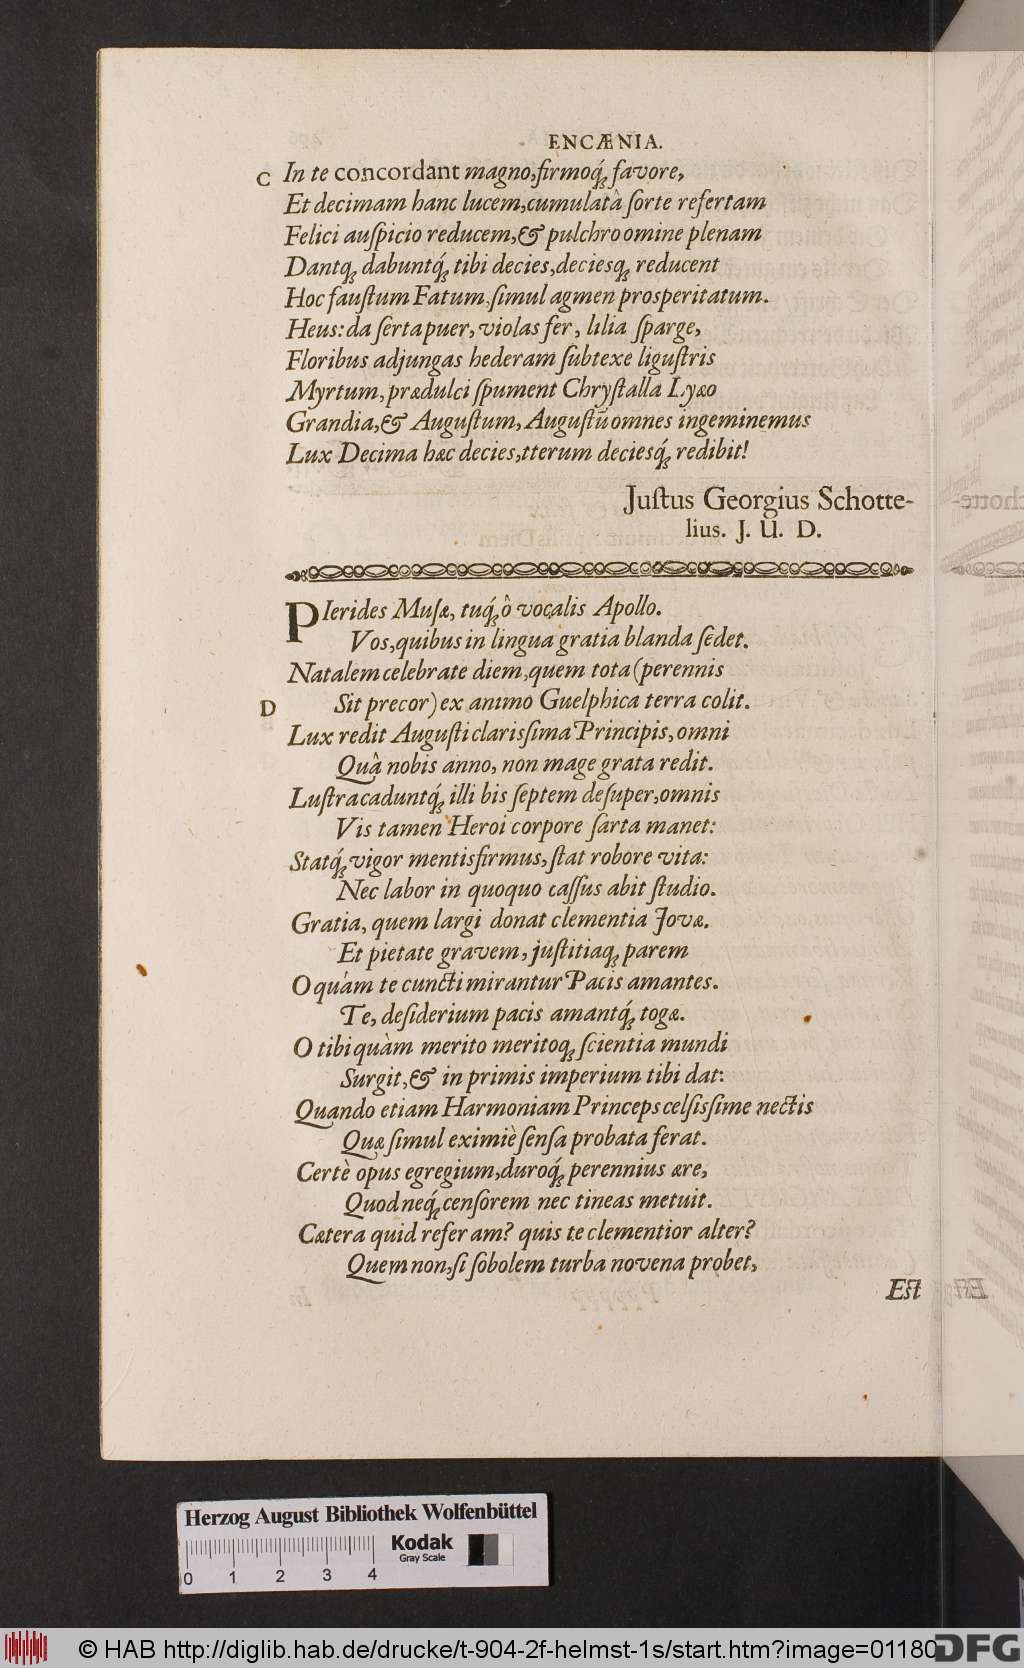 ENCÆNIA.
C In te concordant magno, firmoq́; favore,
Et decimam hanc lucem, cumulatâ ſorte refertam
Felici auſpicio reducem, & pulchro omine plenam
Dantq; dabuntq́; tibi decies, deciesq; reducent
Hoc fauſtum Fatum, ſimul agmen proſperitatum.
Heus: da ſerta puer, violas fer, lilia ſparge,
Floribus adjungas hederam ſubtexe liguſtris
Myrtum, prædulci ſpument Chryſtalla Lyæo
Grandia, & Auguſtum, Auguſtū omnes ingeminemus
Lux Decima hæc decies, tterum deciesq́; redibit!
Juſtus Georgius Schotte-
lius. J. U. D.
PIerides Muſæ, tuq́; ô vocalis Apollo.
Vos, quibus in lingua gratia blanda ſedet.
Natalem celebrate diem, quem tota (perennis
D Sit precor) ex animo Guelphica terra colit.
Lux redit Auguſti clarisſima Principis, omni
Quâ nobis anno, non mage grata redit.
Luſtra caduntq́; illi bis ſeptem deſuper, omnis
Vis tamen Heroi corpore ſarta manet:
Statq́; vigor mentis firmus, ſtat robore vita:
Nec labor in quoquo caſſus abit ſtudio.
Gratia, quem largi donat clementia Jovæ.
Et pietate gravem, juſtitiaq; parem
O quàm te cuncti mirantur Pacis amantes.
Te, deſiderium pacis amantq́; togæ.
O tibi quàm merito meritoq; ſcientia mundi
Surgit, & in primis imperium tibi dat:
Quando etiam Harmoniam Princeps celſisſime nectis
Quæ ſimul eximiè ſenſa probata ferat.
Certè opus egregium, duroq́; perennius ære,
Quod neq́; cenſorem nec tineas metuit.
Cætera quid referam? quis te clementior alter?
Quem non, ſi ſobolem turba novena probet,
Eſt
Herzog August Bibliothek Wolfenbüttel
Kodak
Gray Scale
0 1 2 3 4
© HAB http://diglib.hab.de/drucke/t-904-2f-helmst-1s/start.htm?image=01180
DFG